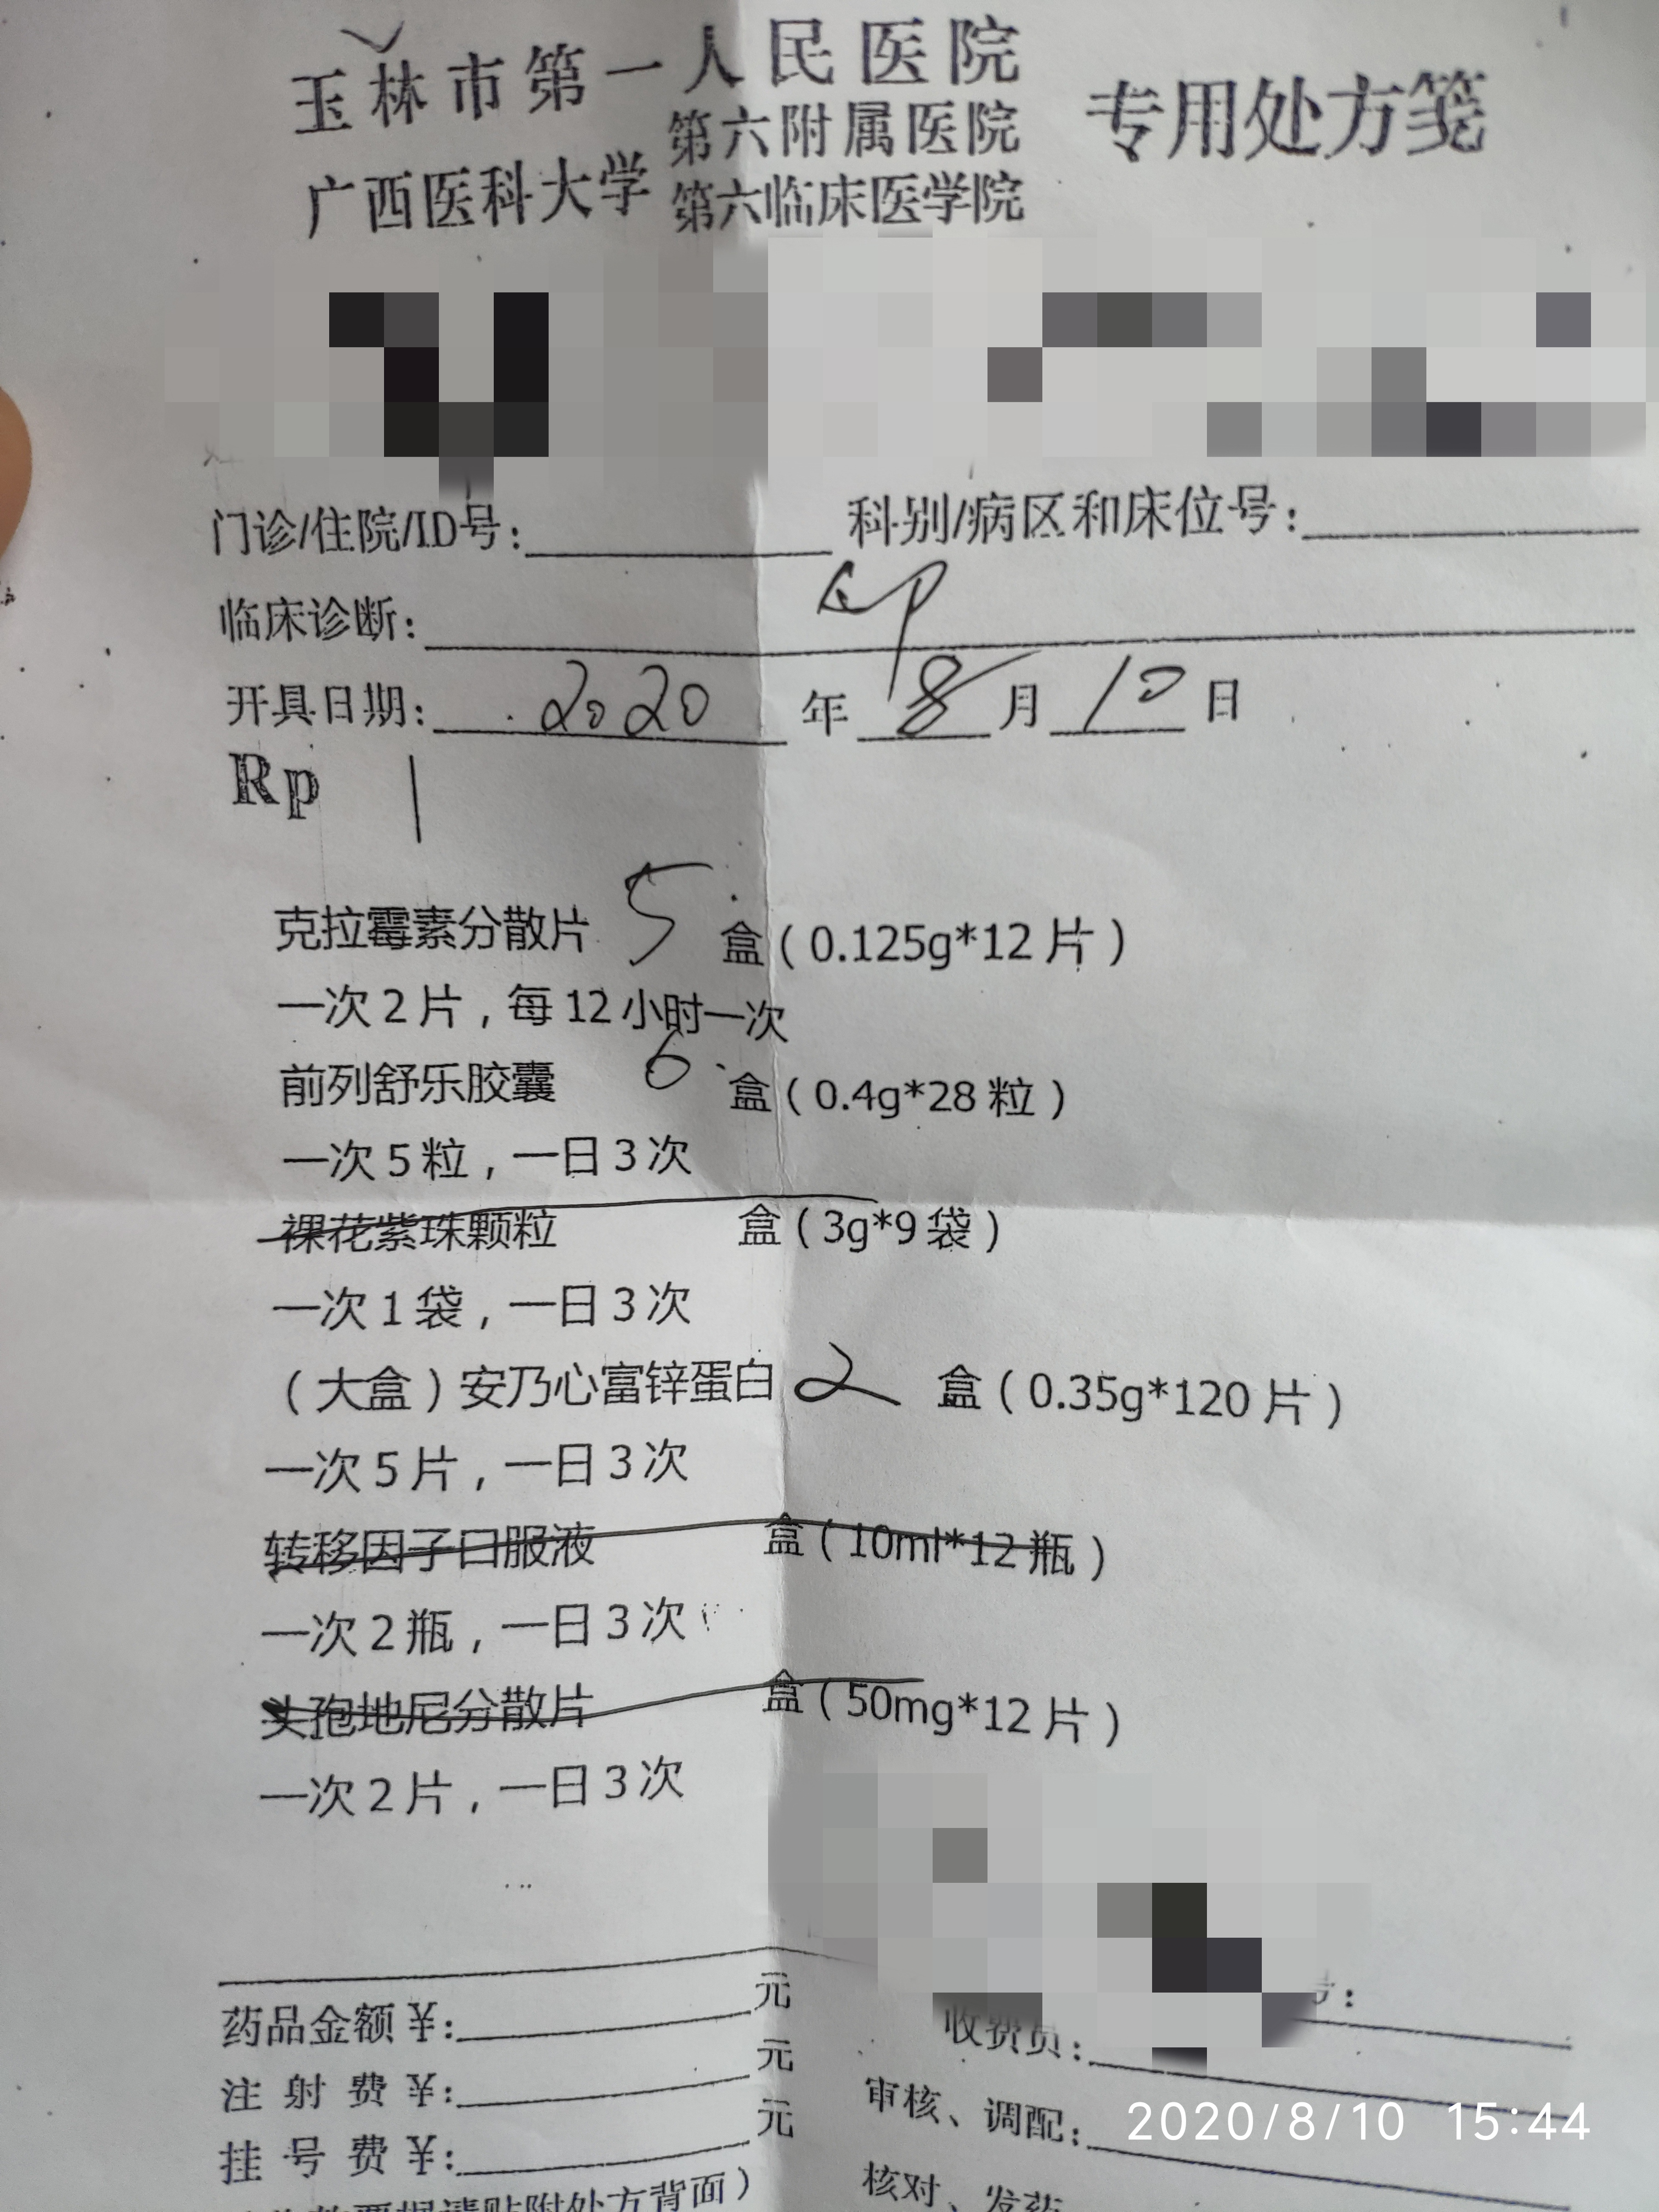 玉林市第一人民医院
广西医科大学 第六附属医院 第六临床医学院 专用处方笺
门诊/住院/ID号: 科别/病区和床位号:
临床诊断:
开具日期: 2020 年 8 月 10 日
Rp
克拉霉素分散片 5 盒(0.125g*12片)
一次2片,每12小时一次
前列舒乐胶囊 6 盒(0.4g*28粒)
一次5粒,一日3次
裸花紫珠颗粒 盒(3g*9袋)
一次1袋,一日3次
(大盒)安乃心富锌蛋白 2 盒(0.35g*120片)
一次5片,一日3次
转移因子口服液 盒(10ml*12瓶)
一次2瓶,一日3次
头孢地尼分散片 盒(50mg*12片)
一次2片,一日3次
药品金额¥: 元 收费员:
注射费¥: 元 审核、调配:
挂号费¥: 元 核对、发药
2020/8/10 15:44